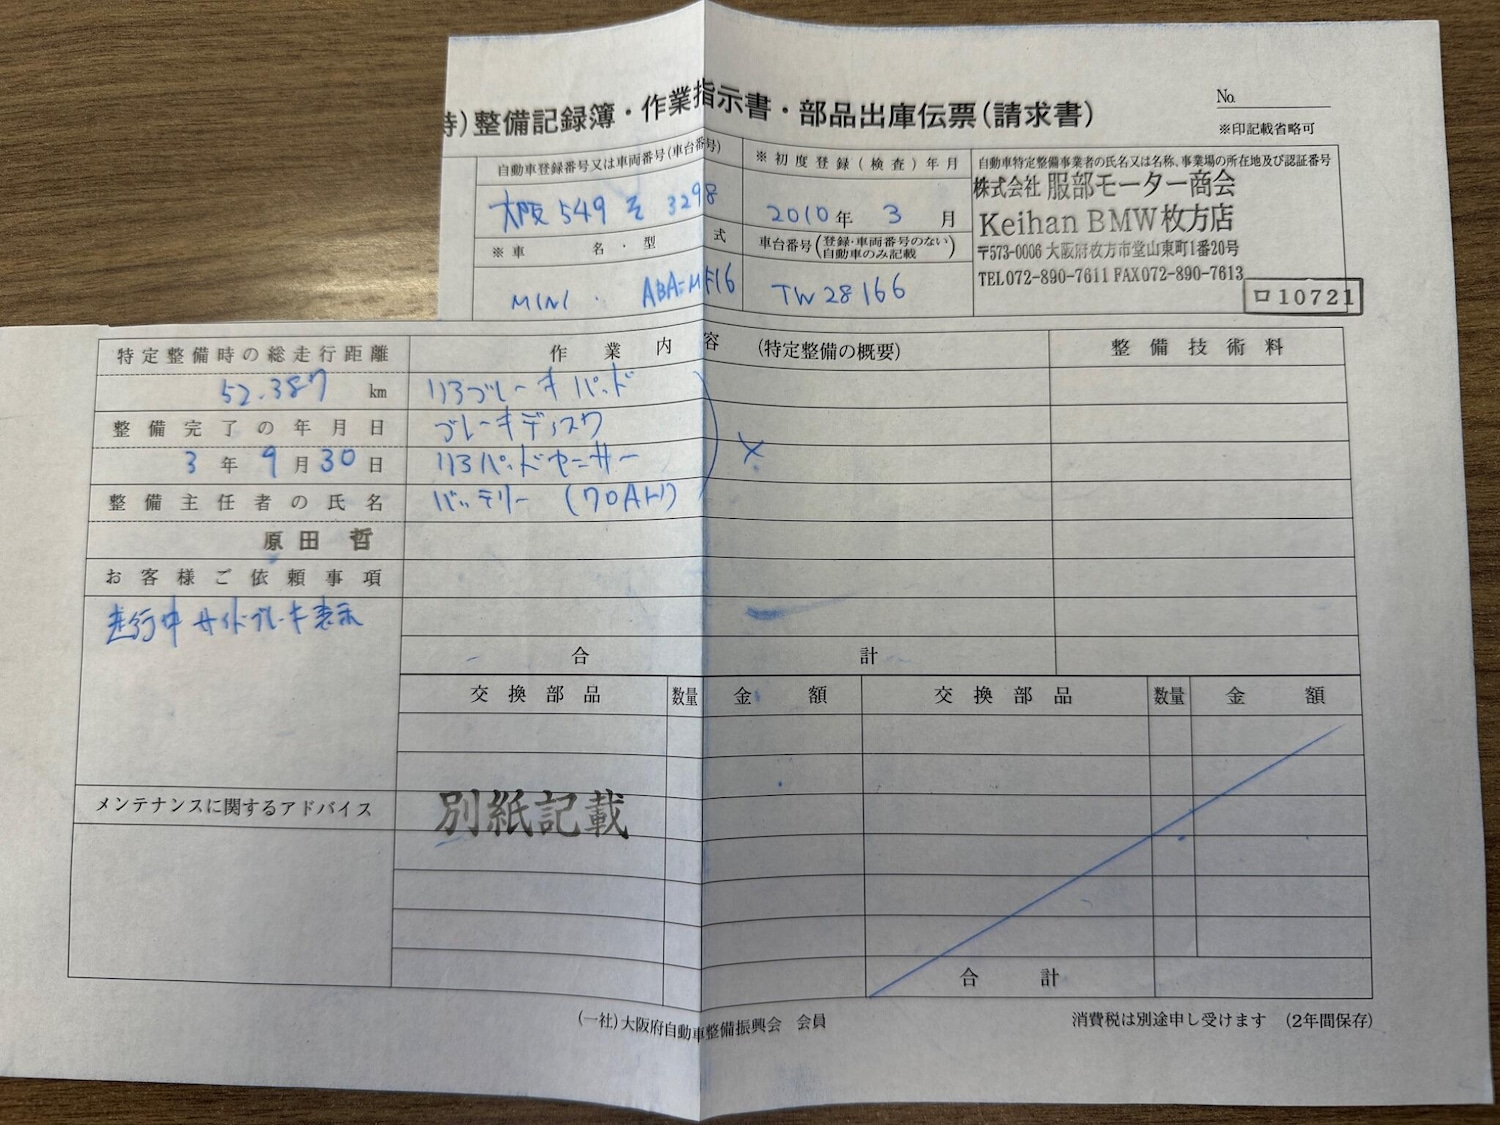 特)整備記録簿・作業指示書・部品出庫伝票(請求書)
No.
※印記載省略可
自動車登録番号又は車両番号(車台番号)
大阪 549 そ 3298
※初度登録(検査)年月
2010年 3月
自動車特定整備事業者の氏名又は名称、事業場の所在地及び認証番号
株式会社 服部モーター商会
Keihan BMW枚方店
〒573-0006 大阪府枚方市堂山東町1番20号
TEL072-890-7611 FAX072-890-7613
ロ10721
※車名・型式
MINI. ABA-MF16
車台番号(登録・車両番号のない自動車のみ記載)
TW28166
特定整備時の総走行距離
52.387 km
整備完了の年月日
3年9月30日
整備主任者の氏名
原田 哲
お客様ご依頼事項
走行中 サイドブレーキ表示
メンテナンスに関するアドバイス
作業内容 (特定整備の概要)
整備技術料
リヤブレーキパッド
ブレーキディスク
リヤパッドセンサー
バッテリー (70AH)
×
合計
交換部品 数量 金額 交換部品 数量 金額
別紙記載
合計
(一社)大阪府自動車整備振興会 会員
消費税は別途申し受けます (2年間保存)